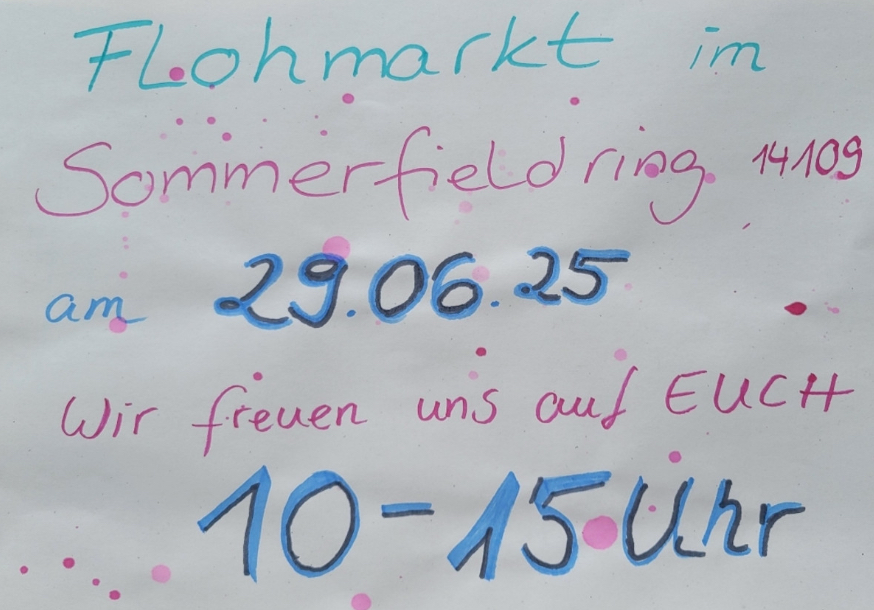 Flohmarkt im
Sommerfieldring 14109
am 29.06.25
Wir freuen uns auf EUCH
10-15 Uhr